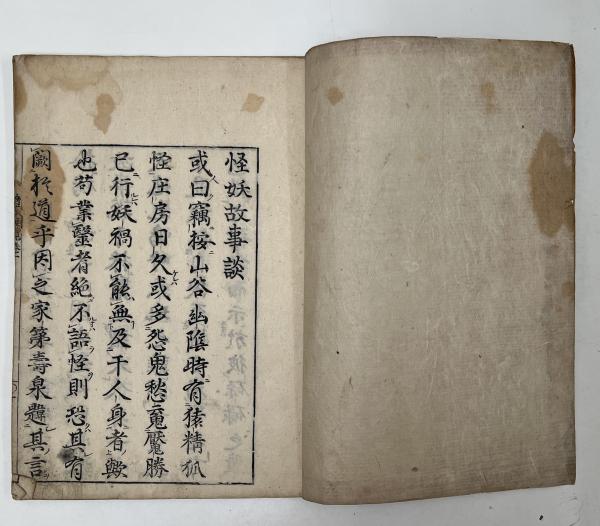 怪妖故事談
或曰竊按山谷幽陰時有猿精狐
怪庄房日久或多怨鬼愁魂魘勝
已行妖禍不能無及于人身者歟
也苟業醫者絶不語怪則恐其有
闕於道乎因之家第壽泉韙其言